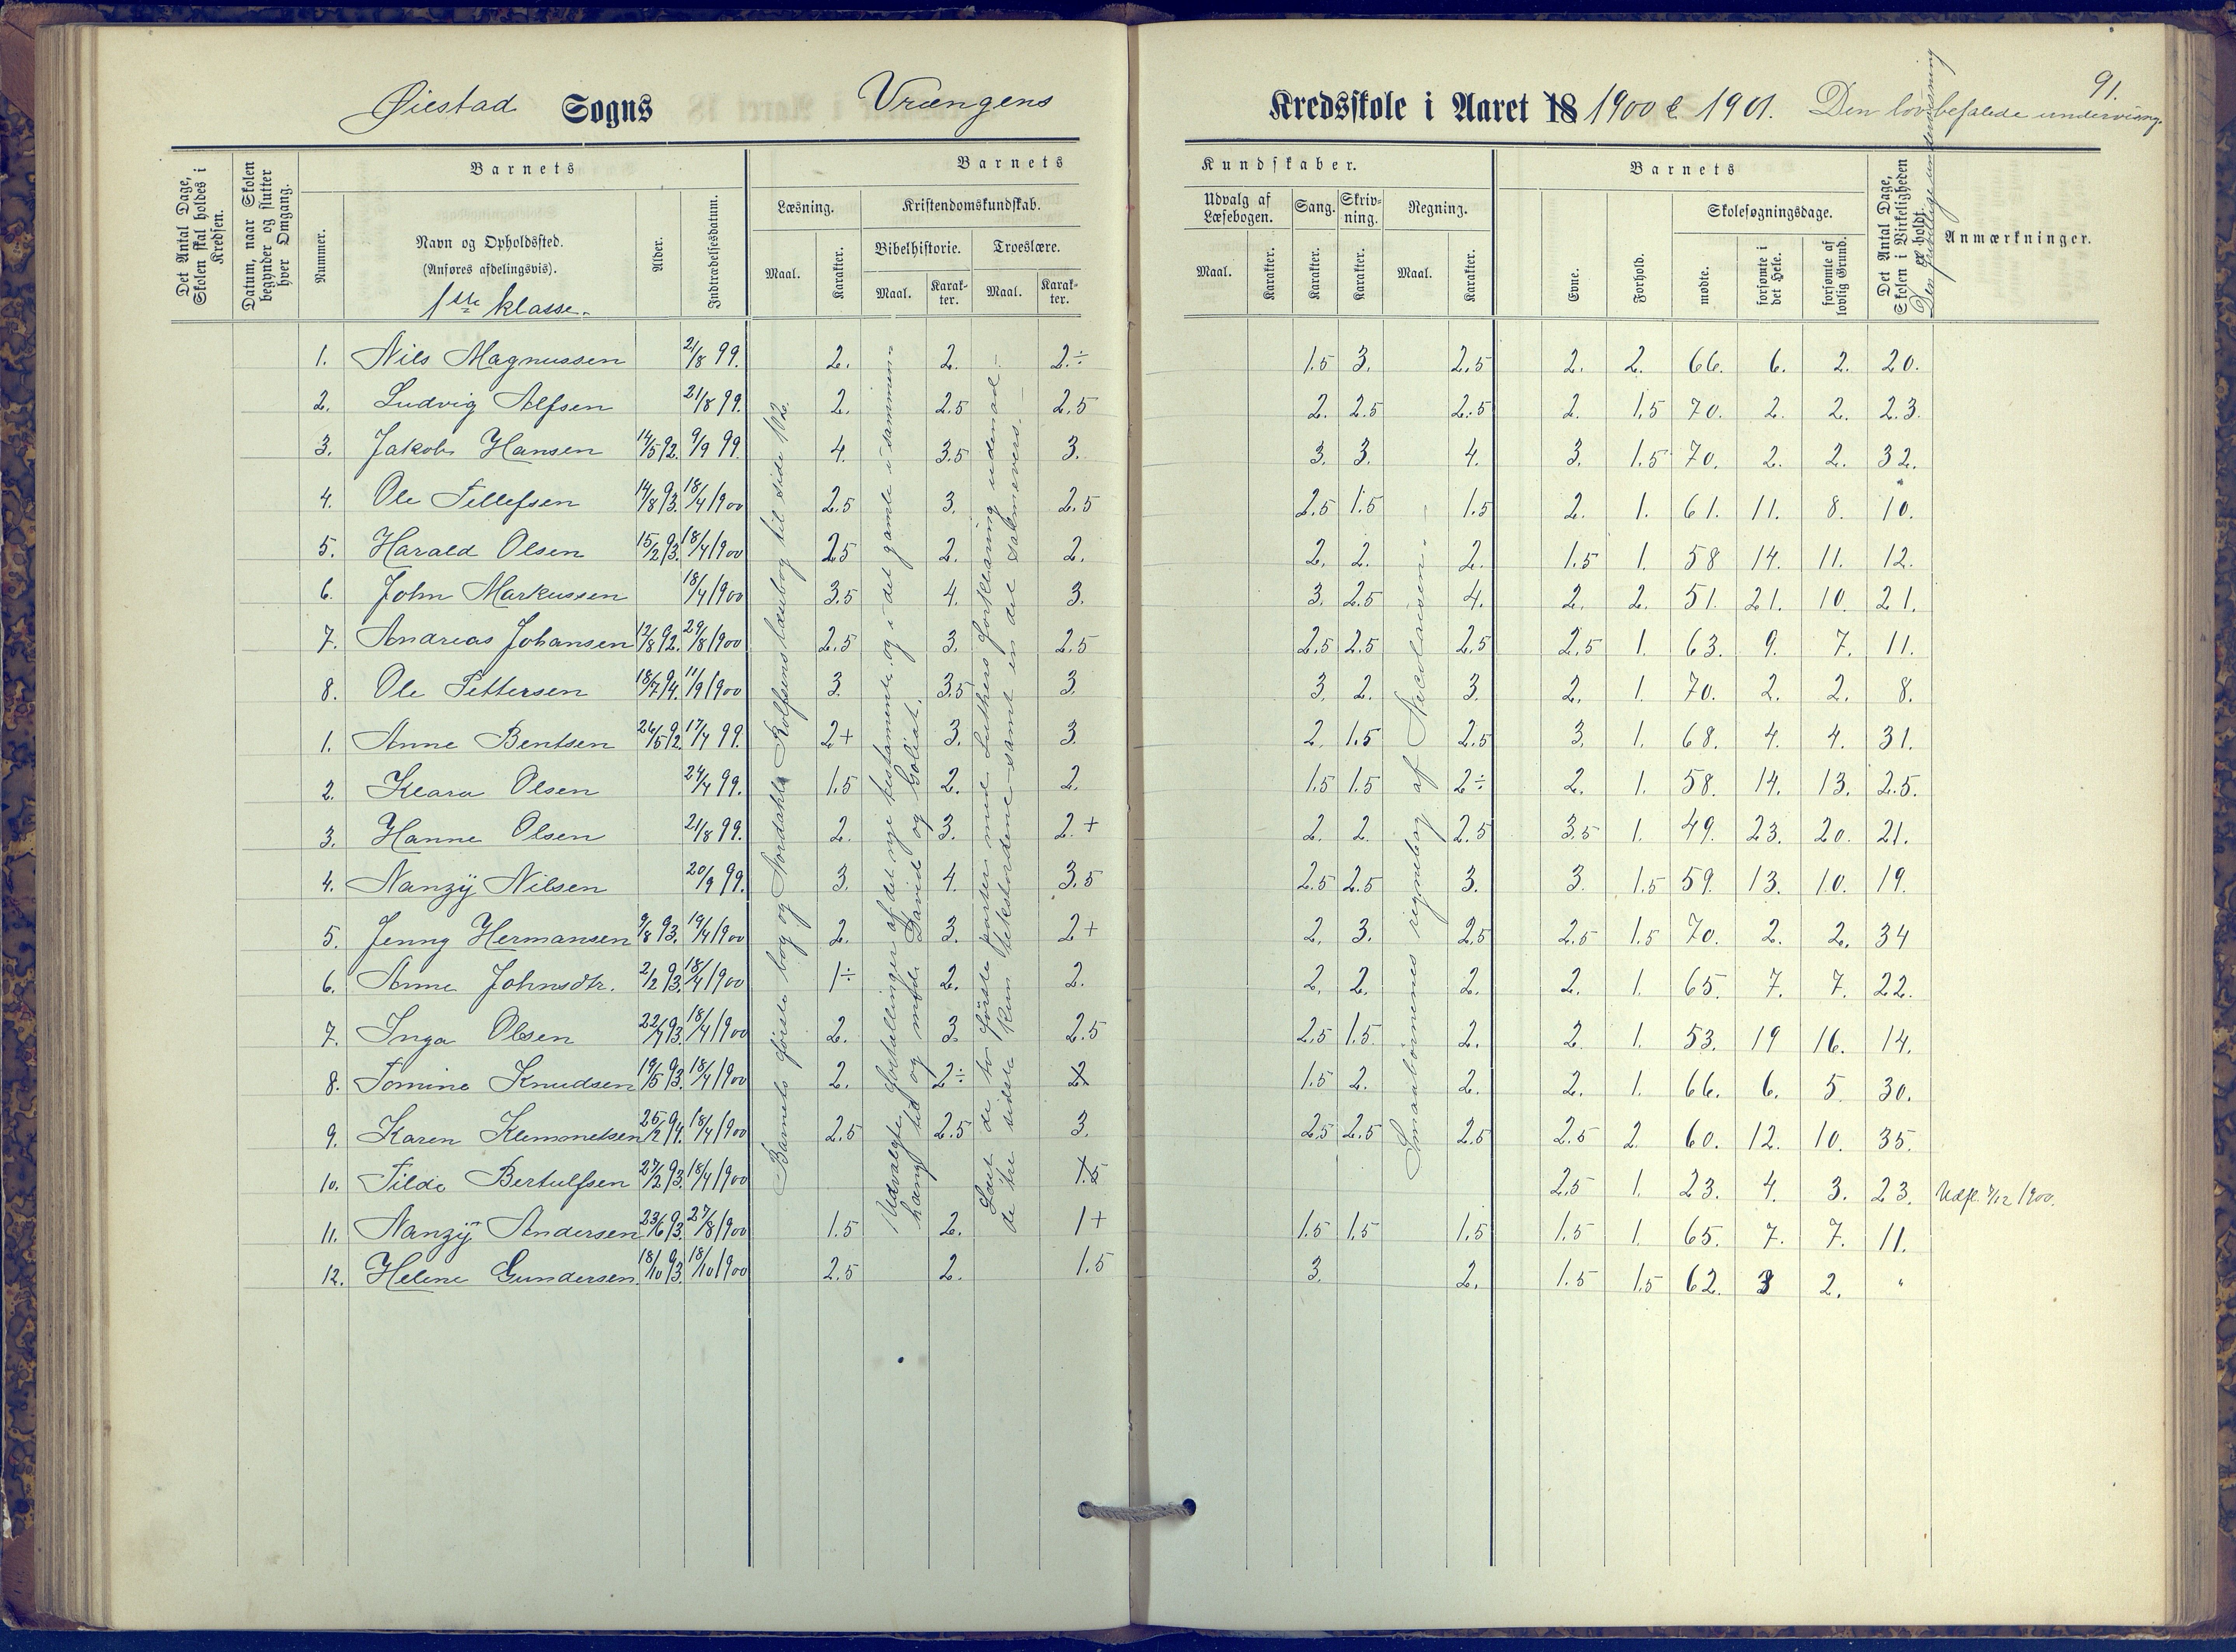 Øiestad Sogns Vrængens Kredsskole i Aaret 18 1900 & 1901. Den lovbefalede undervisng.
91.
Det Antal Dage, Skolen skal holdes i Kredsen.
Datum, naar Skolen begynder og slutter hver Omgang.
Barnets
Nummer.
Navn og Opholdssted.
(Anføres afdelingsvis).
1ste klasse.
Alder.
Indtrædelsesdatum.
Barnets Kundskaber.
Læsning.
Maal.
Karakter.
Kristendomskundskab.
Bibelhistorie.
Maal.
Karakter.
Troeslære.
Maal.
Karakter.
Udvalg af Læsebogen.
Maal.
Karakter.
Sang.
Karakter.
Skrivning.
Karakter.
Regning.
Maal.
Karakter.
Barnets
Evne.
Forhold.
Skolesøgningsdage.
mødte.
forsømte i det Hele.
forsømte af lovlig Grund.
Det Antal Dage, Skolen i Virkeligheden er holdt.
Den frivillige undervisning
Anmærkninger.
Barnets første bog og Nordahl Rolfsens læsebog til side 102.
Udvalgte fortællinger af det nye testamente og i det gamle i sammenhæng til og med David og Goliat.
Læst de to første parter med Luthers forklaring udenad. de tre sidste kun tekstordene samt en del salmevers.
Smaabørnenes regnebog af Nicolaisen.
1. Nils Magnussen 21/8 99. 2. 2. 2÷ 1.5 3. 2.5 2. 2. 66. 6. 2. 20.
2. Ludvig Alfsen 21/8 99. 2. 2.5 2.5 2. 2.5 2.5 2. 1.5 70. 2. 2. 23.
3. Jakob Hansen 14/5 92. 9/9 99. 4. 3.5 3. 3. 3. 4. 3. 1.5 70. 2. 2. 32.
4. Ole Tellefsen 14/8 93. 18/4 1900 2.5 3. 2.5 2.5 1.5 1.5 2. 1. 61. 11. 8. 10.
5. Harald Olsen 15/2 93. 18/4 1900 2.5 2. 2. 2. 2. 2. 1.5 1. 58 14. 11. 12.
6. John Markussen 18/4 1900 3.5 4. 3. 3. 2.5 4. 2. 2. 51. 21. 10. 21.
7. Andreas Johansen 12/8 92. 29/8 1900 2.5 3. 2.5 2.5 2.5 2.5 2.5 1. 63. 9. 7. 11.
8. Ole Pettersen 18/7 94. 11/9 1900 3. 3.5 3. 3. 2. 3. 2. 1. 70. 2. 2. 8.
1. Anne Bentsen 26/5 92. 17/4 99. 2+ 3. 3. 2. 1.5 2.5 3. 1. 68. 4. 4. 31.
2. Klara Olsen 24/4 99. 1.5 2. 2. 1.5 1.5 2÷ 2. 1. 58. 14. 13. 25.
3. Hanne Olsen 21/8 99. 2. 3. 2.+ 2. 2. 2.5 3.5 1. 49. 23. 20. 21.
4. Nanzÿ Nilsen 20/9 99. 3. 4. 3.5 2.5 2.5 3. 3. 1.5 59. 13. 10. 19.
5. Jenny Hermansen 9/8 93. 19/4 1900 2. 3. 2+ 2. 3. 2.5 2.5 1.5 70. 2. 2. 34
6. Anne Johnsdtr. 2/2 93. 18/4 1900 1÷ 2. 2. 2. 2. 2. 2. 1. 65. 7. 7. 22.
7. Inga Olsen 22/7 93. 18/4 1900 2. 3. 2.5 2.5 1.5 2. 2 1. 53. 19 16. 14.
8. Tomine Knudsen 19/5 93. 18/4 1900 2. 2÷ 2 1.5 2. 2. 2. 1. 66. 6. 5 30.
9. Karen Klemmetsen 25/2 94. 18/4 1900 2.5 2.5 3. 2.5 2.5 2.5 2.5 2 60. 12. 10. 35.
10. Tilde Bertulfsen 27/2 93. 18/4 1900 1.5 2.5 1. 23. 4. 3. 23. Udfl. 7/12 1900.
11. Nanzÿ Andersen 23/6 93. 27/8 1900 1.5 2. 1+ 1.5 1.5 1.5 1.5 1. 65. 7. 7. 11.
12. Helene Gundersen. 18/10 93. 18/10 1900 2.5 2. 1.5 3. 2. 1.5 1.5 62. 3 2. "